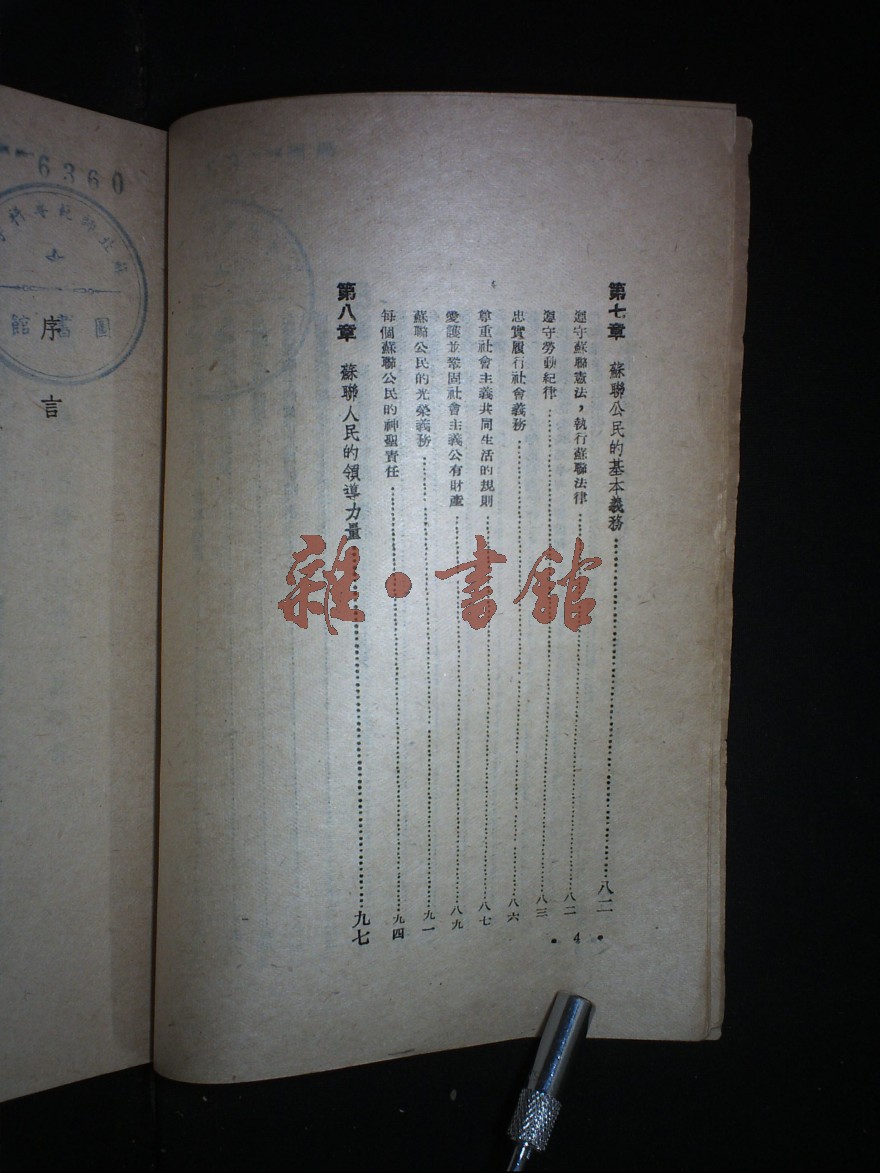 第七章 蘇聯公民的基本義務……八二
遵守蘇聯憲法，執行蘇聯法律……八二
遵守勞動紀律……八三
忠實履行社會義務……八六
尊重社會主義共同生活的規則……八七
愛護並鞏固社會主義公有財產……八九
蘇聯公民的光榮義務……九一
每個蘇聯公民的神聖責任……九四
第八章 蘇聯人民的領導力量……九七
• 4 •
序言
6360
圖書館
雜·書館